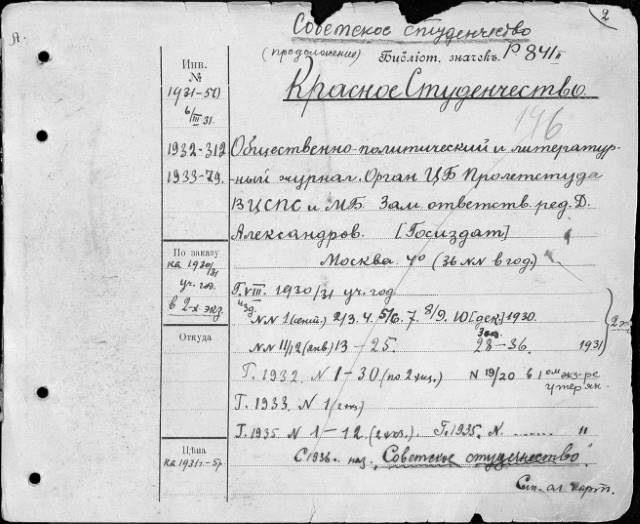 2
Советское студенчество
(продолжение) Библіот. значокъ. Р 841
Инв.
№
Красное Студенчество.
1931-50
6/III 31.
196
1932-312 Общественно-политический и литератур-
1933-79. ный журнал. Орган ЦБ Пролетстуда
ВЦСПС и МБ Зам. ответств. ред. Д.
Александров. [Госиздат]
Москва. 4º (36 NN в год)
По заказу
на 1930/31
уч. год
в 2-х экз.
Г. VIII. 1930/31 уч. год
изд.
NN 1 2/3. 4. 5/6. 7. 8/9. 10 [дек] 1930.
Откуда
NN 11/12 (янв) 13 – 25. 28 – 36. 1931
Г. 1932. N 1 – 30 (по 2 экз.) N 19/20 в 1 ом экз-ре
утерян.
Г. 1933. N 1 (2 экз.)
Г. 1935. N 1 – 12. (2 экз.) Г. 1935. N. "
Цѣна
на 1931г.-5р.
С 1936. наз. „Советское студенчество"
См. ал. карт.